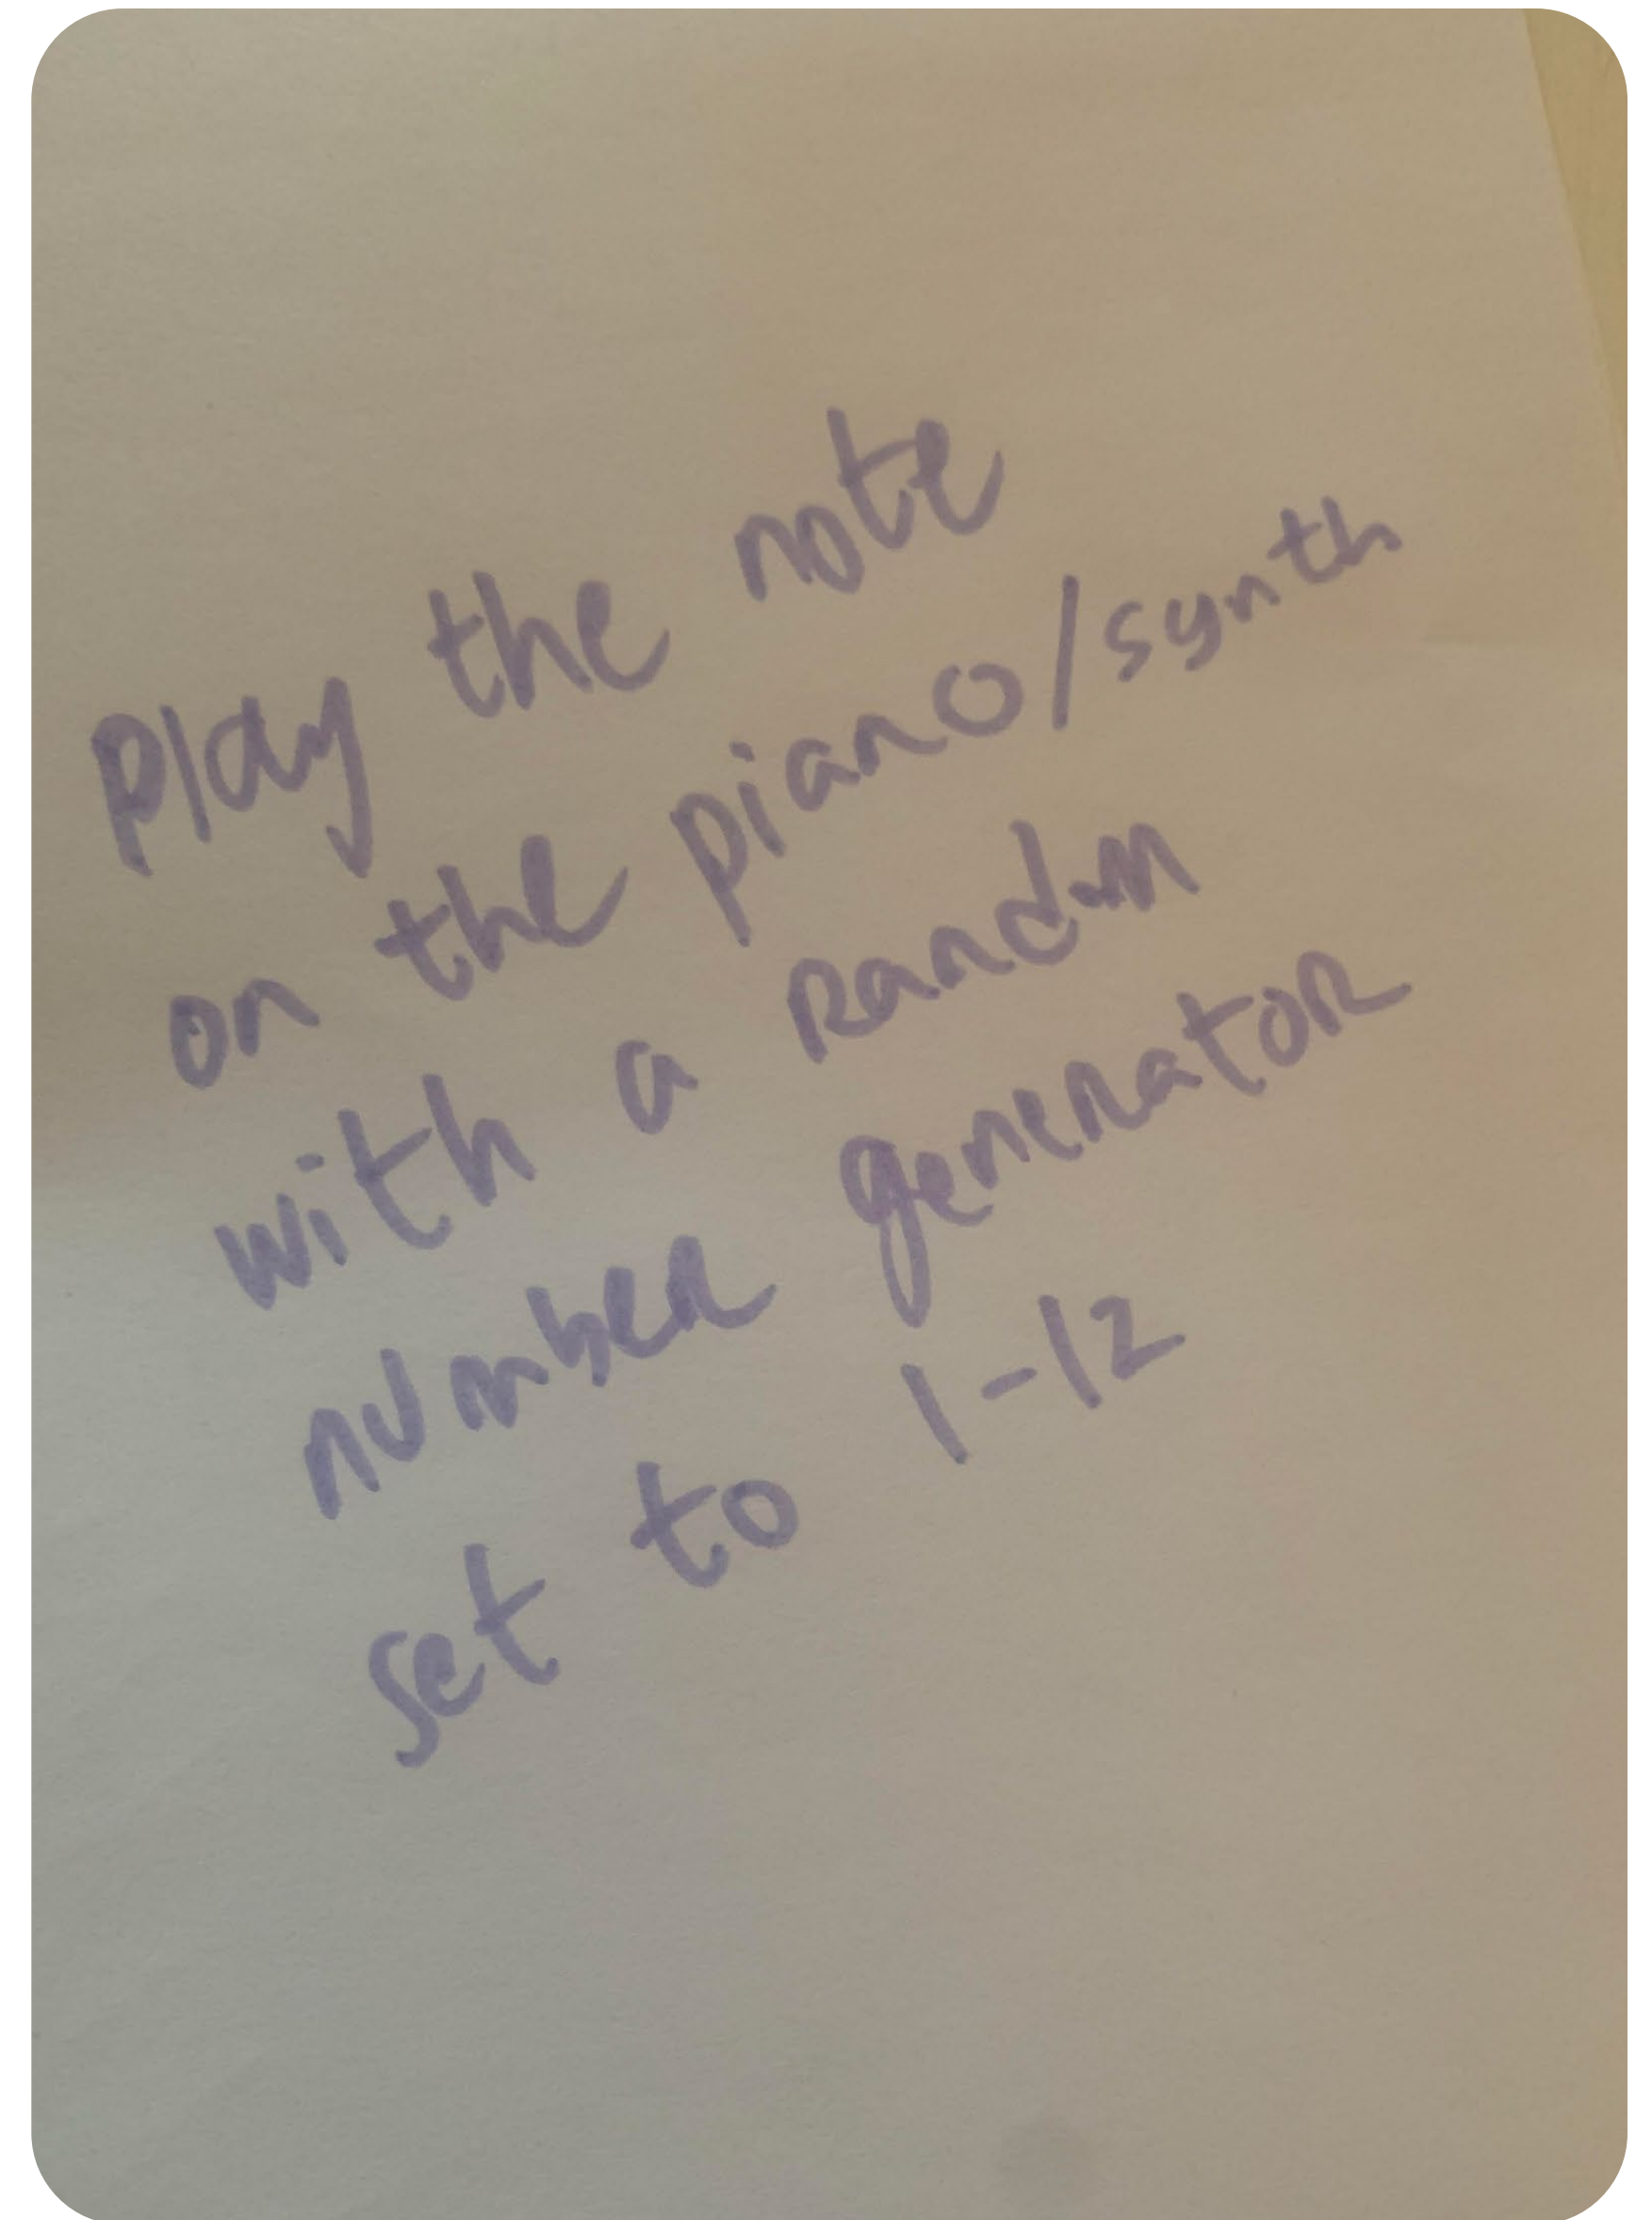 play the note
on the piano/synth
with a random
number generator
set to 1-12